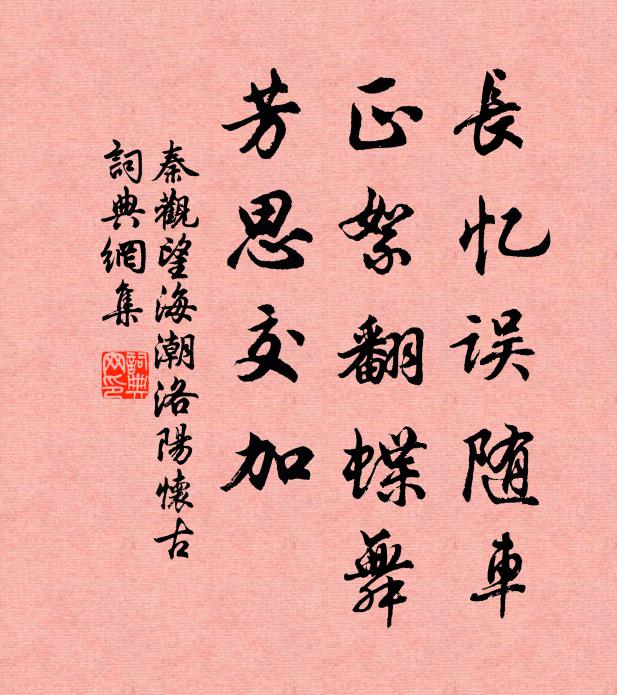 長忆误随車
正絮翻蝶舞
芳思交加
秦觀望海潮洛陽懷古
詞典網集
詞典网印